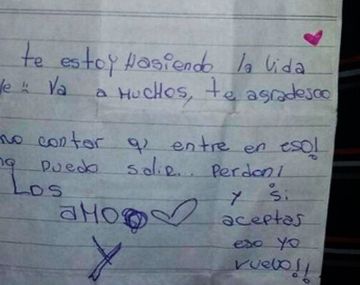 te estoy Hasiendo la vida
Va a MUCHOS, te agradesco
no contar q' entre en eso!
puedo salir.. Perdon!
Los
y si
aMO
aceptas
eso yo
y
vuelvo!!